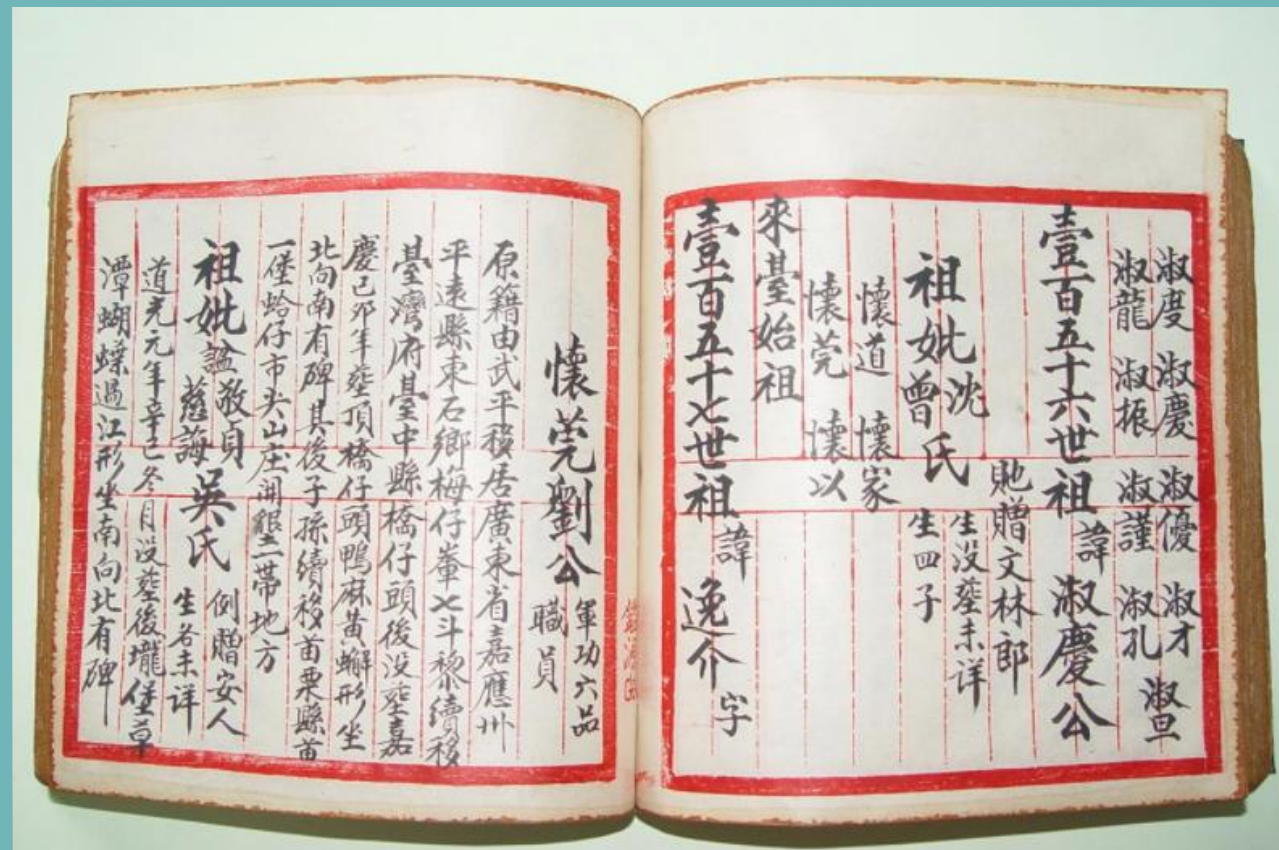 淑度 淑慶 淑優 淑才 淑旦
淑龍 淑振 淑謹 淑孔
壹百五十六世祖 諱 淑慶公
貤贈文林郎
祖妣 沈 曾 氏 生没塟未详
生四子
懷道 懷家
懷莞 懷以
來臺始祖
壹百五十七世祖 諱 逸介 字
懷莞劉公 軍功六品
職員
原籍由武平移居廣東省嘉應州
平遠縣東石鄉梅仔輋七斗 續移
臺灣府臺中縣橋仔頭後没塟嘉
慶己夘年塟頂橋仔頭鴨麻黃蠏形坐
北向南有碑其後子孫續移苗栗縣苗
一堡蛤仔市头山庄開艱一帶地方
祖妣謚 敬貞 慈誨 吳氏 例贈安人
生各未详
道光元年辛巳冬月没塟後壠堡草
潭蝴蝶過江形坐南向北有碑